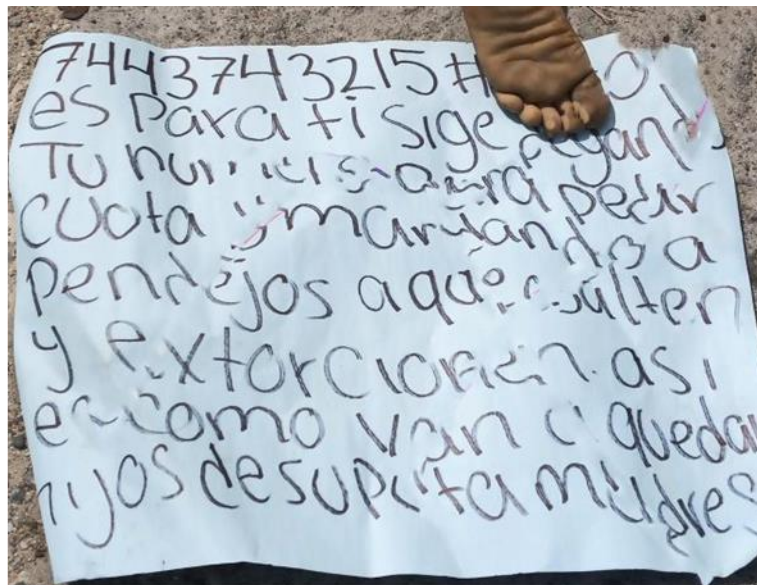 7443743215 #
es para ti sige regando
Tu numero para pedir
cuota y mandando a
pendejos a que asalten
y extorcionen asi
es como van a quedar
hijos de su puta madres